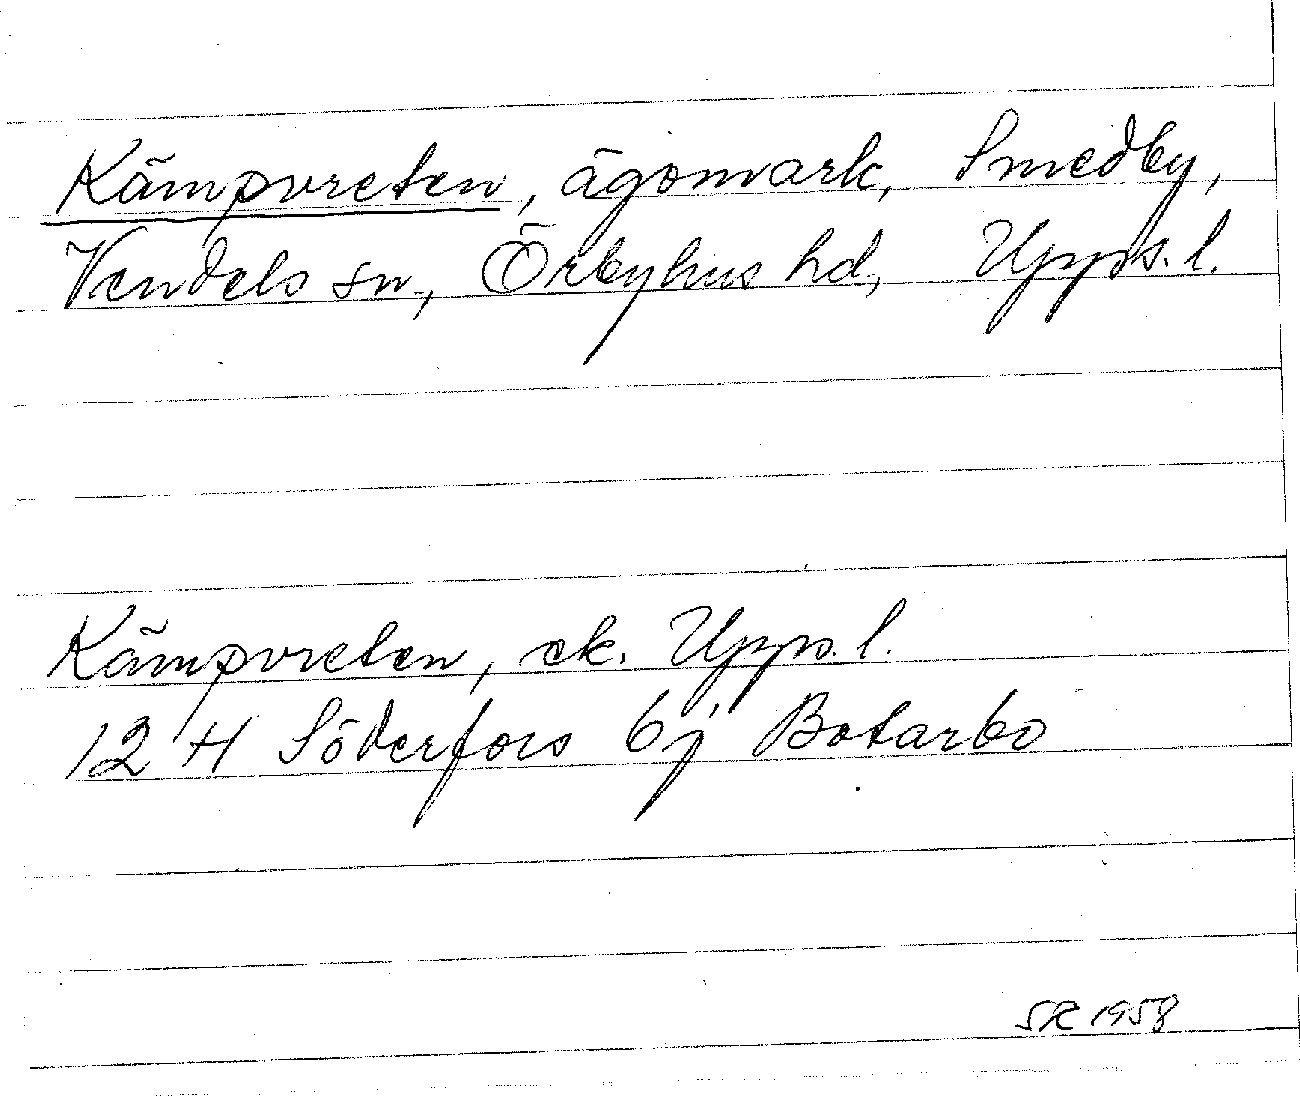 Kämpvreten, ägomark, Smedby,
Vendels sn, Örbyhus hd, Upps. l.
Kämpvreten, ek. Upps. l.
12 H Söderfors 6j Botarbo
SR 1958